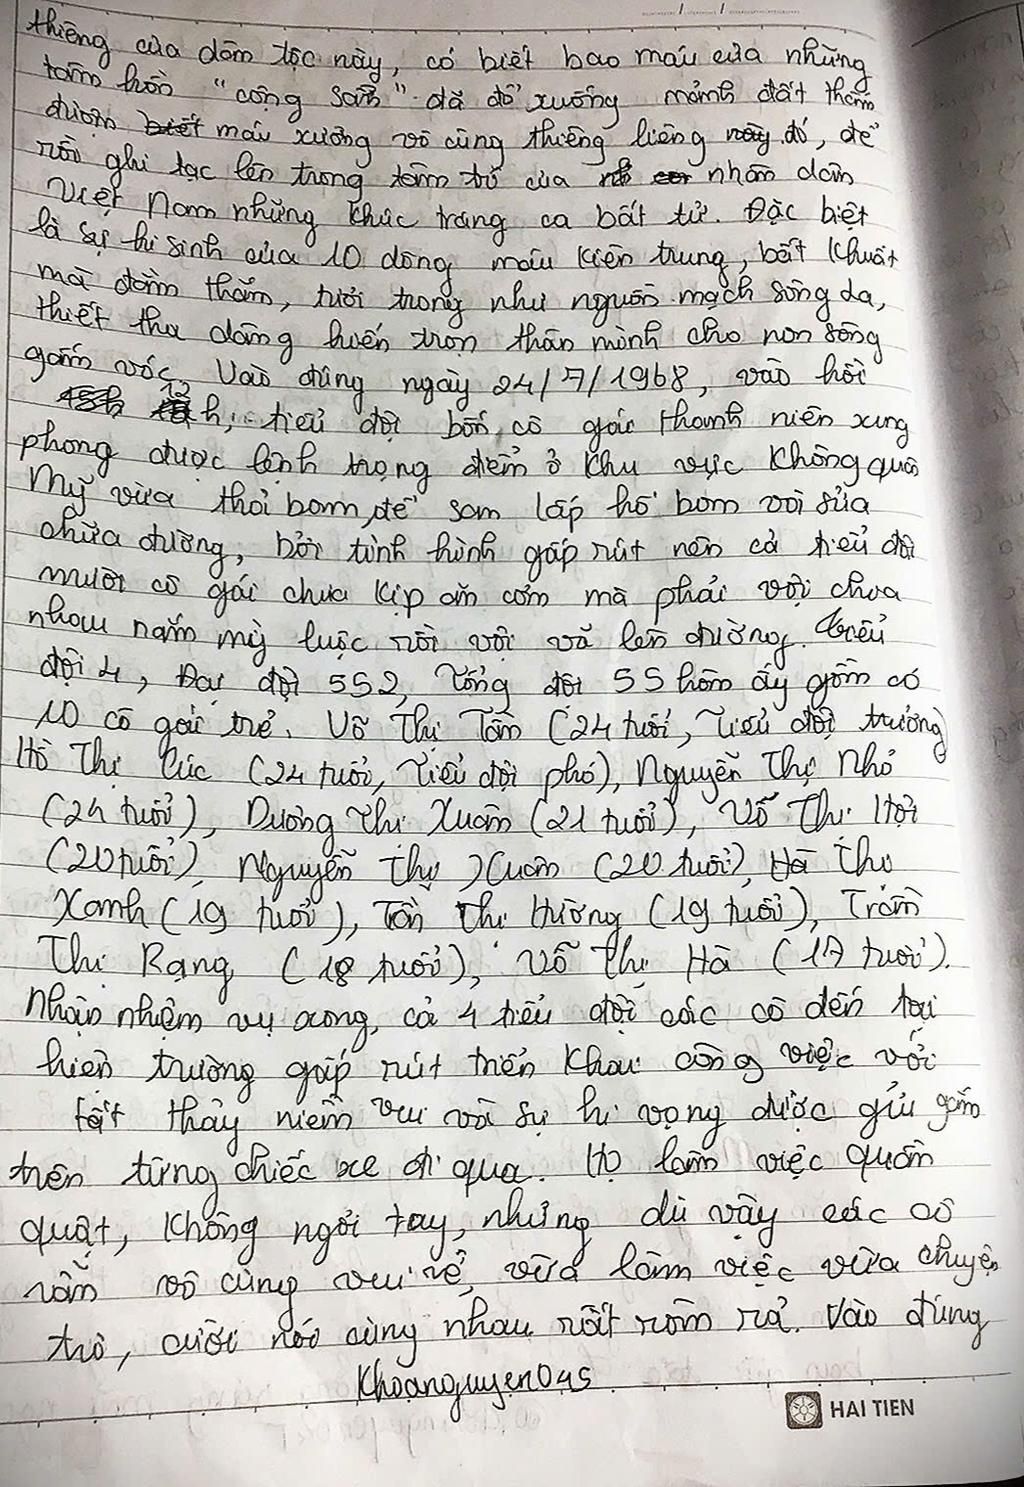 thiêng của dân tộc này, có biết bao máu của những
tâm hồn "cộng sản" đã đổ xuống mảnh đất thấm
đượm máu xương vô cùng thiêng liêng đó, để
rồi ghi tạc lên trong tâm trí của nhân dân
Việt Nam những khúc tráng ca bất tử. Đặc biệt
là sự hi sinh của 10 dòng máu kiên trung, bất khuất
mà đằm thắm, tươi trong như nguồn mạch sông La,
thiết tha dâng hiến trọn thân mình cho non sông
gấm vóc. Vào đúng ngày 24/7/1968, vào hồi
12h, tiểu đội bốn cô gái thanh niên xung
phong được lệnh trọng điểm ở khu vực không quân
Mỹ vừa thả bom, để san lấp hố bom và sửa
chữa đường, bởi tình hình gấp rút nên cả tiểu đội
mười cô gái chưa kịp ăn cơm mà phải vội chia
nhau nắm mỳ luộc rồi vội vã lên đường. Tiểu
đội 4, Đại đội 552, Tổng đội 55 hôm ấy gồm có
10 cô gái trẻ. Võ Thị Tần (24 tuổi, Tiểu đội trưởng)
Hồ Thị Cúc (24 tuổi, Tiểu đội phó), Nguyễn Thị Nhỏ
(24 tuổi), Dương Thị Xuân (21 tuổi), Võ Thị Hợi
(20 tuổi), Nguyễn Thị Xuân (20 tuổi), Hà Thị
Xanh (19 tuổi), Trần Thị Hường (19 tuổi), Trần
Thị Rạng (18 tuổi), Võ Thị Hà (17 tuổi).
Nhận nhiệm vụ xong, cả 4 tiểu đội các cô đến tại
hiện trường gấp rút triển khai công việc với
tất thảy niềm vui và sự hi vọng được gửi gắm
trên từng chiếc xe đi qua. Họ làm việc quần
quật, không ngơi tay, nhưng dù vậy các cô
vẫn vô cùng vui vẻ, vừa làm việc vừa chuyện
trò, cười nói cùng nhau rất rôm rả. Vào đúng
Khoanguyen045
HAI TIEN